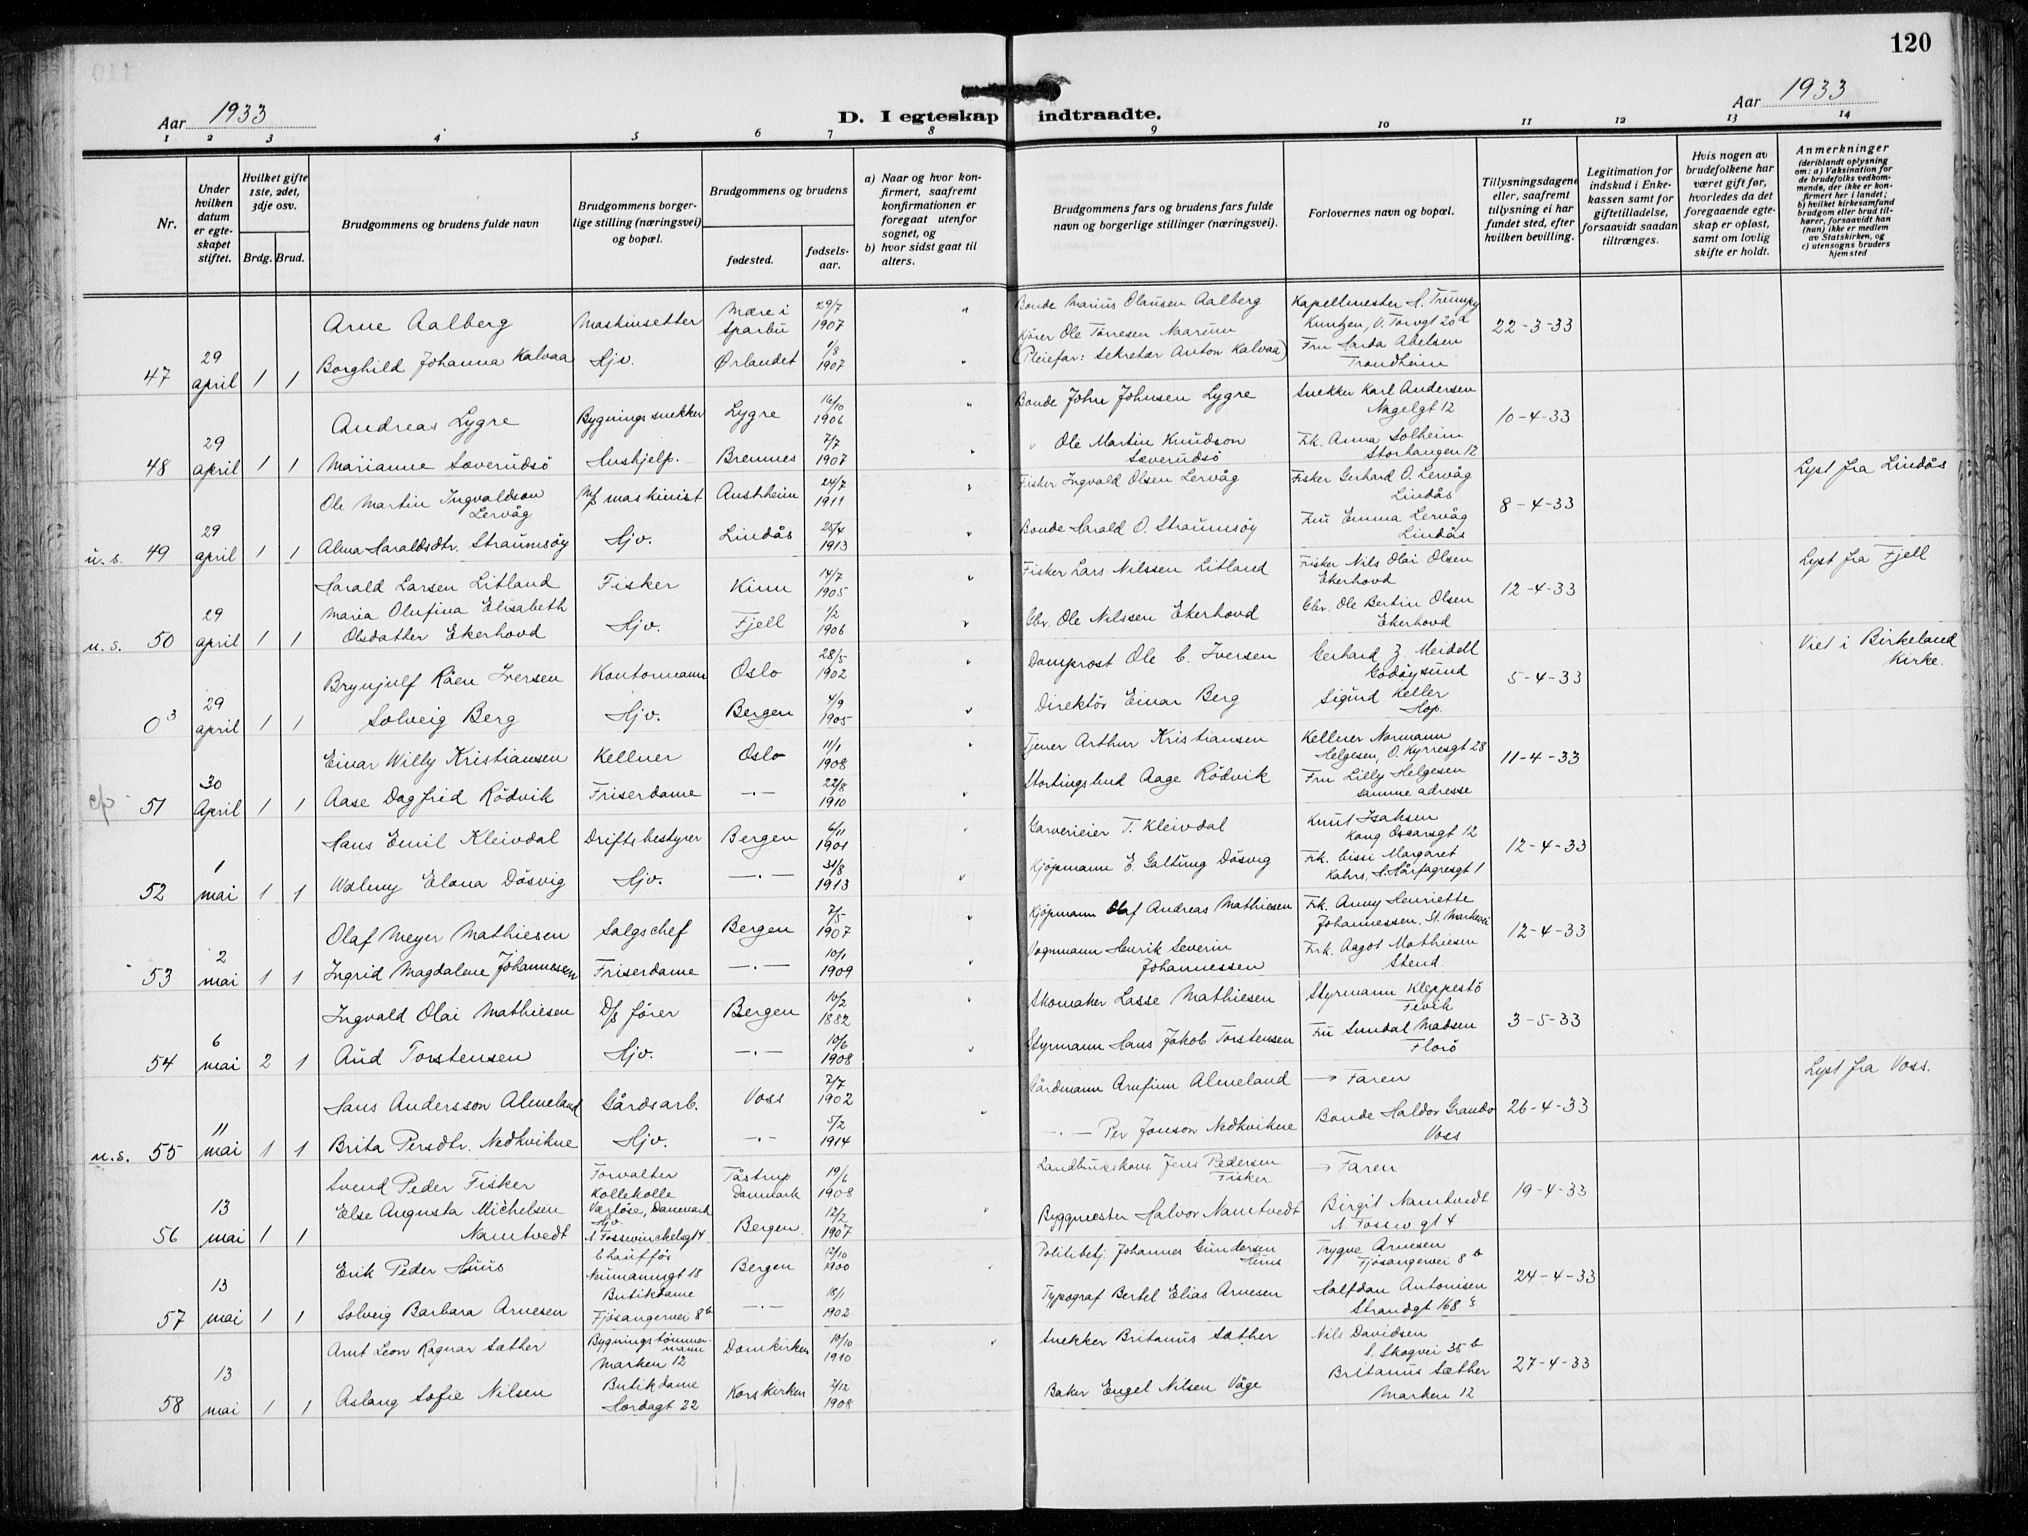 120
Aar 1933
D. I egteskap indtraadte.
Aar 1933
1 2 3 4 5 6 7 8 9 10 11 12 13 14
Nr.
Under hvilken datum er egteskapet stiftet.
Hvilket gifte 1ste, 2det, 3dje osv.
Brdg. Brud.
Brudgommens og brudens fulde navn
Brudgommens borgerlige stilling (næringsvei) og bopæl.
Brudgommens og brudens
fødested.
fødselsaar.
a) Naar og hvor konfirmert, saafremt konfirmationen er foregaat utenfor sognet, og
b) hvor sidst gaat til alters.
Brudgommens fars og brudens fars fulde navn og borgerlige stillinger (næringsvei).
Forlovernes navn og bopæl.
Tillysningsdagene eller, saafremt tillysning ei har fundet sted, efter hvilken bevilling.
Legitimation for indskud i Enkekassen samt for giftetilladelse, forsaavidt saadan tiltrænges.
Hvis nogen av brudefolkene har været gift før, hvorledes da det foregaaende egteskap er opløst, samt om lovlig skifte er holdt.
Anmerkninger
(deriblandt oplysning om: a) Vaksination for de brudefolks vedkommende, der ikke er konfirmert her i landet;
b) hvilket kirkesamfund brudgom eller brud tilhører, forsaavidt han (hun) ikke er medlem av Statskirken, og
c) utensogns bruders hjemsted
Arne Aalberg Maskinsetter Mære i Sparbu 29/7 1907 Bonde Marius Olausen Aalberg Kapellmester H. Trumpy Kuntzen, V. Torvgt 20a 22-3-33
47 29 april 1 1 Borghild Johanna Kalvaa Hjv. Ørlandet 1/8 1907 Kjører Ole Tørresen Naarum (Pleiefar: Sekretær Anton Kalvaa) Fru Harda Abelsen Trondheim
Andreas Lygre Bygningssnekker Lygre 16/10 1906 Bonde John Johnsen Lygre Snekker Karl Andersen Nagelgt 12 10-4-33
48 29 april 1 1 Marianne Sæverudsö Hushjelp. Bremnes 7/7 1907 " Ole Martin Knudson Sæverudsö Frk. Anna Solheim Storhaugen 12
Ole Martin Ingvaldson Lervåg M/s maskinist Austrheim 24/7 1911 Fisker Ingvald Olsen Lervåg Fisker Gerhard O. Lervåg Lindås 8-4-33 Lyst fra Lindås
u.s. 49 29 april 1 1 Alma Haraldsdtr. Straumsöy Hjv. Lindås 25/4 1913 Bonde Harald O. Straumsöy Fru Emma Lervåg Lindås
Harald Larsen Litland Fisker Kinn 14/7 1905 Fisker Lars Nilssen Litland Fisker Nils Olai Olsen Ekerhovd 12-4-33 Lyst fra Fjell
u.s. 50 29 april 1 1 Maria Olufina Elisabeth Olsdatter Ekerhovd Hjv. Fjell 1/2 1906 Gbr. Ole Nilssen Ekerhovd Gbr. Ole Bertin Olsen Ekerhovd
Brynjulf Råen Iversen Kontormann Oslo 28/5 1902 Domprost Ole C. Iversen Gerhard Z. Meidell Godøysund 5-4-33 Viet i Birkeland Kirke.
0³ 29 april 1 1 Solveig Berg Hjv. Bergen 4/9 1905 Direktör Einar Berg Sigurd Keller Hop.
Einar Willy Kristiansen Kellner Oslo 11/1 1908 Tjener Arthur Kristiansen Kellner Normann Helgesen, O. Kyrresgt 28 11-4-33
51 30 April 1 1 Aase Dagfrid Rödvik Friserdame -"- 22/8 1910 Stortingsbud Aage Rödvik Fru Lilly Helgesen samme adresse
Hans Emil Kleivdal Driftsbestyrer Bergen 6/11 1901 Garverieier T. Kleivdal Knut Isaksen Kong Oscarsgt 12 12-4-33
52 1 mai 1 1 Walmy Elona Dösvig Hjv. -"- 31/8 1913 Kjöpmann E. Galtung Dösvig Frk. Cissi Margaret Kahrs, H. Hårfagresgt 1
Olaf Meyer Mathiesen Salgschef Bergen 7/5 1907 Kjöpmann Olaf Andreas Mathiesen Frk. Anny Henriette Johannessen. St. Markevei 12-4-33
53 2 mai 1 1 Ingrid Magdalene Johannessen Friserdame -"- 10/1 1909 Vognmann Henrik Severin Johannessen Frk. Aagot Mathiesen Stend.
Ingvald Olai Mathiesen D/s fører Bergen 10/2 1882 Skomaker Lasse Mathiesen Styrmann Kleppestö Fevik 3-5-33
54 6 mai 2 1 Aud Torstensen Hjv. -"- 10/6 1908 Styrmann Hans Jakob Torstensen Fru Sundal Madsen Florö
Hans Andersson Almeland Gårdsarb. Voss 7/7 1902 Gårdmann Arnfinn Almeland → Faren 26-4-33 Lyst fra Voss.
u.s. 55 11 mai 1 1 Brita Persdtr. Nedkvikne Hjv. -"- 5/2 1914 -"- Per Jonson Nedkvikne Bonde Haldor Grando Voss
Svend Peder Fisker Forvalter Kollekolle Værløse, Danmark Tåstrup Danmark 19/6 1908 Landbrukskons. Jens Pedersen Fisker → Faren 19-4-33
56 13 mai 1 1 Else Augusta Michelsen Namtvedt Hjv. N. Fosswinckelsgt 4 Bergen 12/2 1907 Byggmester Halvor Namtvedt Birgit Namtvedt N. Fossw gt 4
Erik Peder Huus Chaufför Neumannsgt 18 Bergen 12/10 1900 Politibetj. Johannes Gundersen Huus Trygve Arnesen Fjösangervei 8b 24-4-33
57 13 mai 1 1 Solveig Barbara Arnesen Butikdame Fjösangervei 8b -"- 18/1 1902 Typograf Bertel Elias Arnesen Halfdan Antonisen Strandgt 168
Arnt Leon Ragnar Sæther Bygningstömmermann Marken 12 Domkirken 10/10 1910 Snekker Britanus Sæther Nils Davidsen S. Skogvei 35b 27-4-33
58 13 mai 1 1 Aslaug Sofie Nilsen Butikdame Hordagt 22 Korskirken 2/12 1908 Baker Engel Nilsen Våge Britanus Sæther Marken 12